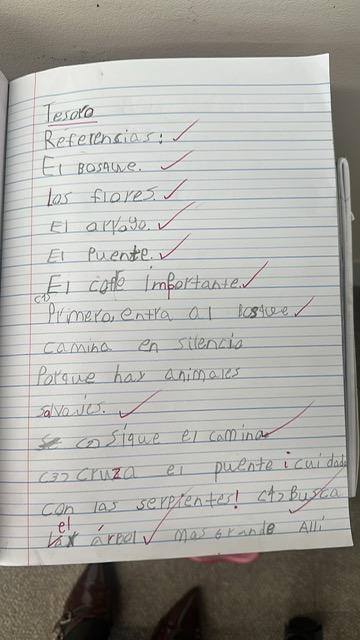 Tesoro
Referencias:
El BOSQUE.
los flores.
El arroyo.
El Puente.
El cofre importante.
(1) Primero, entra al bosque
camina en silencio
Porque hay animales
salvajes.
(2) Sigue el camino
(3) cruza el puente ¡cuidado
con las serpientes! (4) Busca
el árbol mas grande Allí